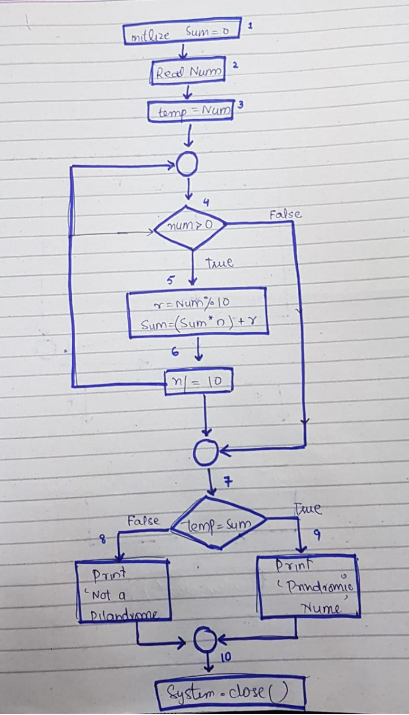 initlize Sum=0 1
Read Num 2
temp = Num 3
4
num>0
False
True
5
r=Num%10
Sum=(Sum*n)+r
6
n/=10
7
temp=Sum
False
True
8
9
Print
'Not a
Pilandrome
Print
'Pnndromic'
Nume
10
System.close()